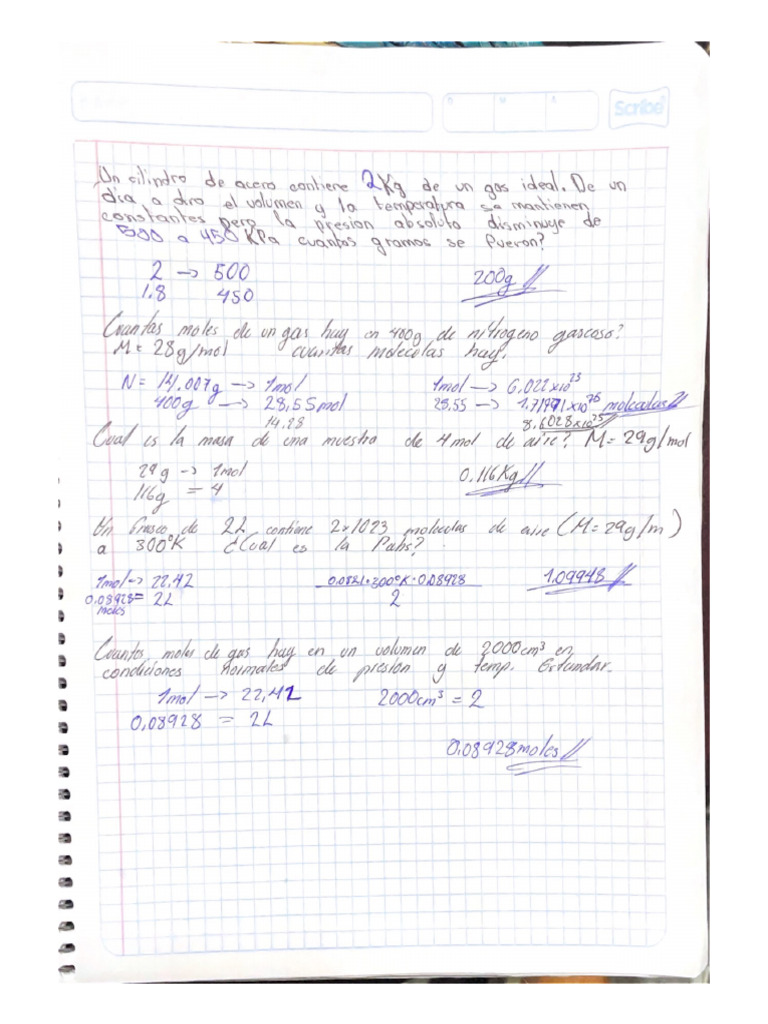 D M A
Scribe
Un cilindro de acero contiene 2Kg de un gas ideal. De un
dia a otro el volumen y la temperatura se mantienen
constantes pero la presion absoluta disminuye de
500 a 450 KPa cuantos gramos se fueron?
2 → 500 200g
1.8 450
Cuantas moles de un gas hay en 400g de nitrogeno gascoso?
M= 28g/mol cuantas moleculas hay.
N = 14.007g → 1mol 1mol → 6,022x10²³
400g → 28,55mol 28,55 → 1.71971x10²⁶ moleculas
14.28 8.6028x10²⁵
Cual es la masa de una muestra de 4mol de aire? M=29g/mol
29g → 1mol 0.116Kg
116g = 4
Un frasco de 2L contiene 2x1023 moleculas de aire (M=29g/m)
a 300°K ¿Cual es la Pabs?
1mol → 22,42 0.0821•300°K•0.08928 1.09948
0.08928 = 2L 2
moles
Cuantos moles de gas hay en un volumen de 2000cm³ en
condiciones normales de presion y temp. Estandar.
1mol → 22,42 2000cm³ = 2
0,08928 = 2L
0.08928moles